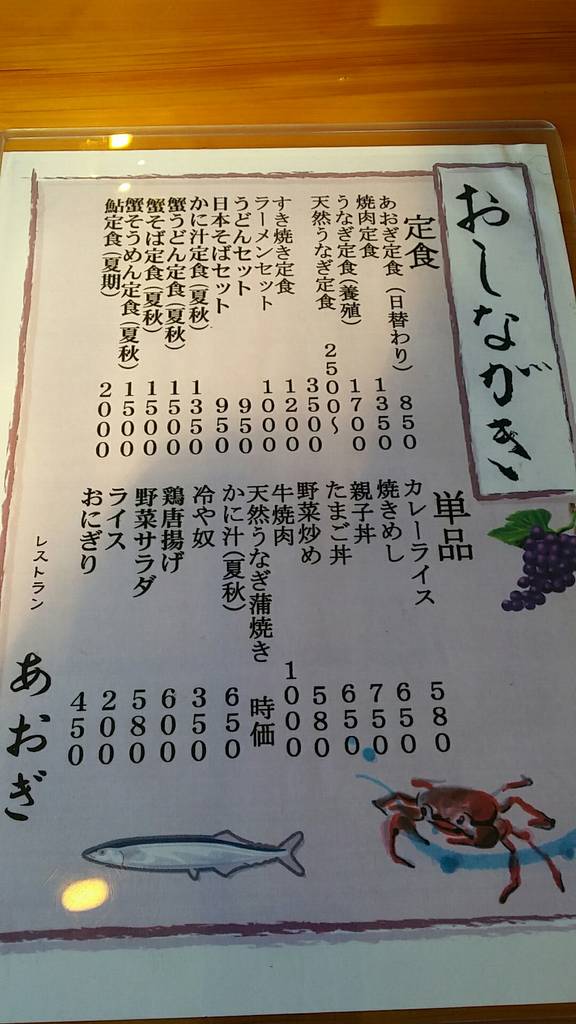 おしながき
定食
あおぎ定食（日替わり） 850
焼肉定食 1350
うなぎ定食（養殖） 1700
天然うなぎ定食 2500～
3500
すき焼き定食 1200
ラーメンセット 1000
うどんセット 950
日本そばセット 950
かに汁定食（夏秋） 1350
蟹うどん定食（夏秋） 1500
蟹そば定食（夏秋） 1500
蟹そうめん定食（夏秋） 1500
鮎定食（夏期） 2000
単品
カレーライス 580
焼きめし 650
親子丼 750
たまご丼 650
野菜炒め 580
牛焼肉 1000
天然うなぎ蒲焼き 時価
かに汁（夏秋） 650
冷や奴 350
鶏唐揚げ 600
野菜サラダ 580
ライス 200
おにぎり 450
レストラン あおぎ